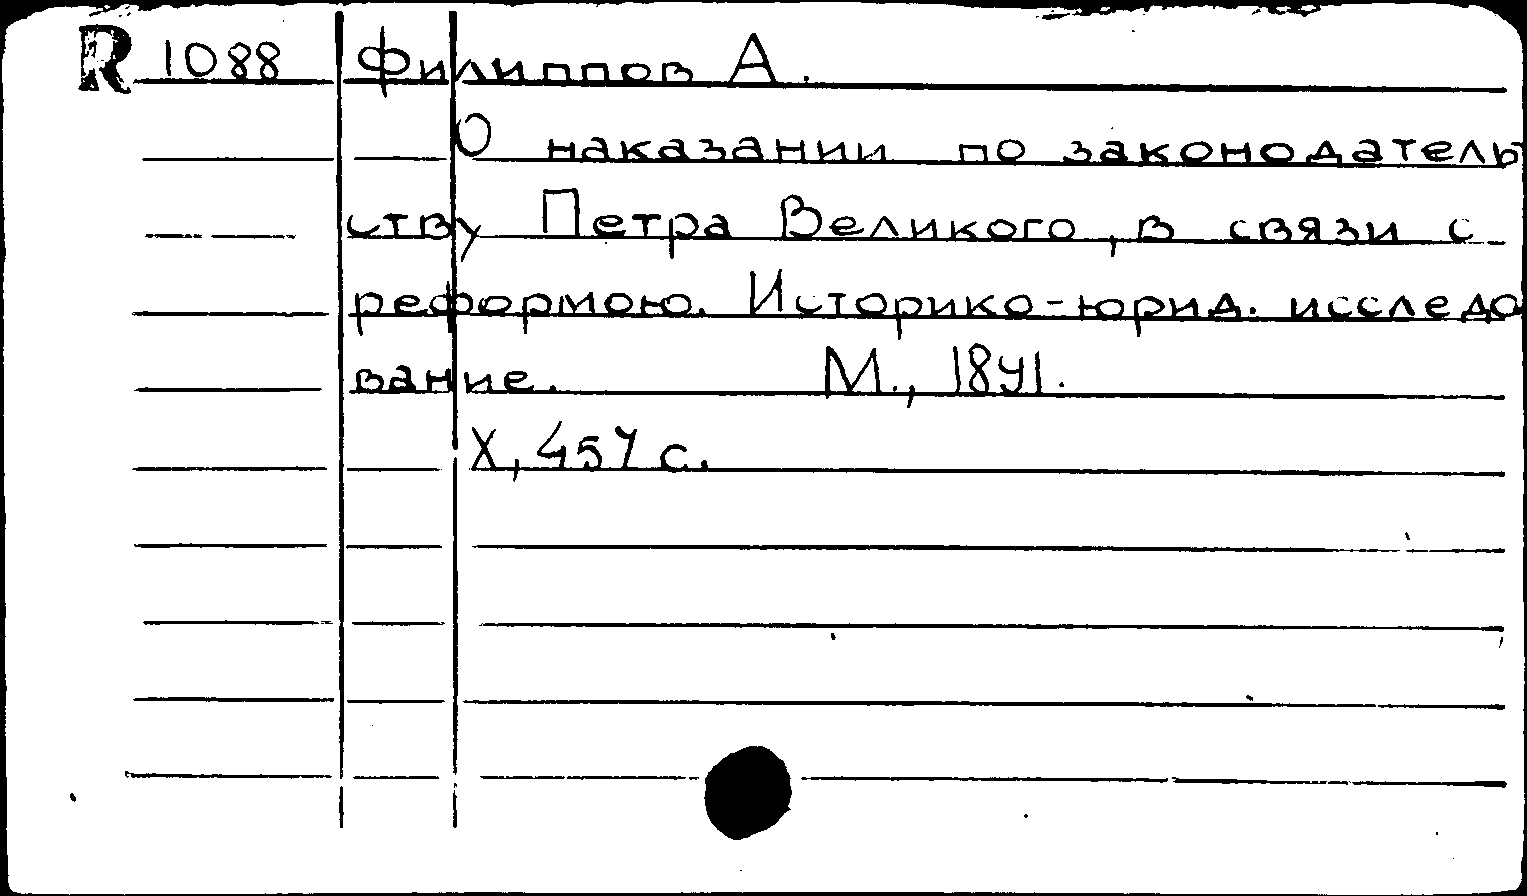 R 1088 Филиппов А.
О наказании по законодатель
ству Петра Великого, в связи с
реформою. Историко-юрид. исследо
вание. М., 1891.
X, 457 с.